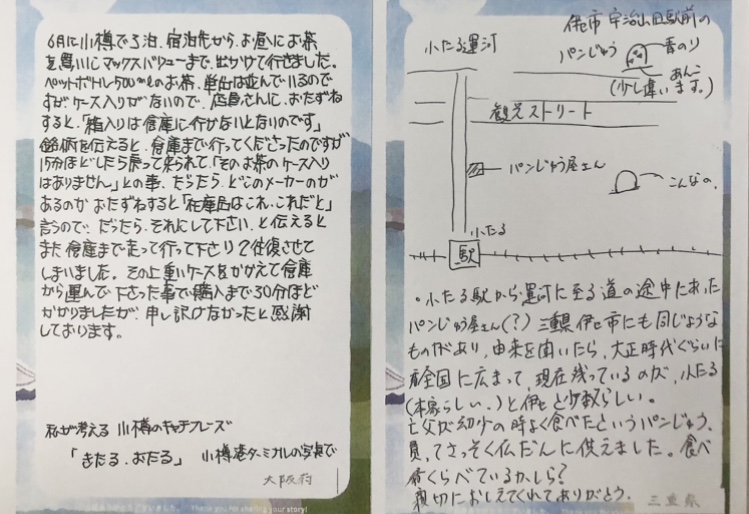 6月に小樽で3泊、宿泊先から、お昼にお茶
を買いにマックスバリューまで、出かけて行きました。
ペットボトル500mlのお茶、単品は並んでいるので
すがケース入りがないので、店員さんに、おたずね
すると、「箱入りは倉庫に行かないとないのです」
銘柄を伝えると、倉庫まで行ってくださったのですが
15分ほどしたら戻って来られて「そのお茶のケース入り
はありません」との事、だったら、どこのメーカーのが
あるのか おたずねすると「在庫品はこれ、これだと」
言うので、だったら、それにして下さい、と伝えると
また倉庫まで走って行って下さり2往復させて
しまいました。その上重いケースをかかえて倉庫
から運んで下さった事で購入まで30分ほど
かかりましたが、申し訳けなかったと感謝
しております。
私が考える 小樽のキャチフレーズ
「きたる、おたる」 小樽港ターミナルの写真で
大阪府
Thank you for sharing your story!
伊セ市 宇治山田駅前の
パンじゅう
青のり
あんこ
(少し違います。)
小たる運河
観光ストリート
パンじゅう屋さん
こんなの。
小たる
駅
・小たる駅から運河に至る道の途中にあった
パンじゅう屋さん(?) 三重県伊セ市にも同じような
ものがあり、由来を聞いたら、大正時代ぐらいに
全国に広まって、現在残っているのが、小たる
(本家らしい。)と伊セと少数らしい。
亡父が幼少の時よく食べたというパンじゅう、
買ってさっそく仏だんに供えました。食べ
くらべているかしら?
親切におしえてくれてありがとう。
三重県